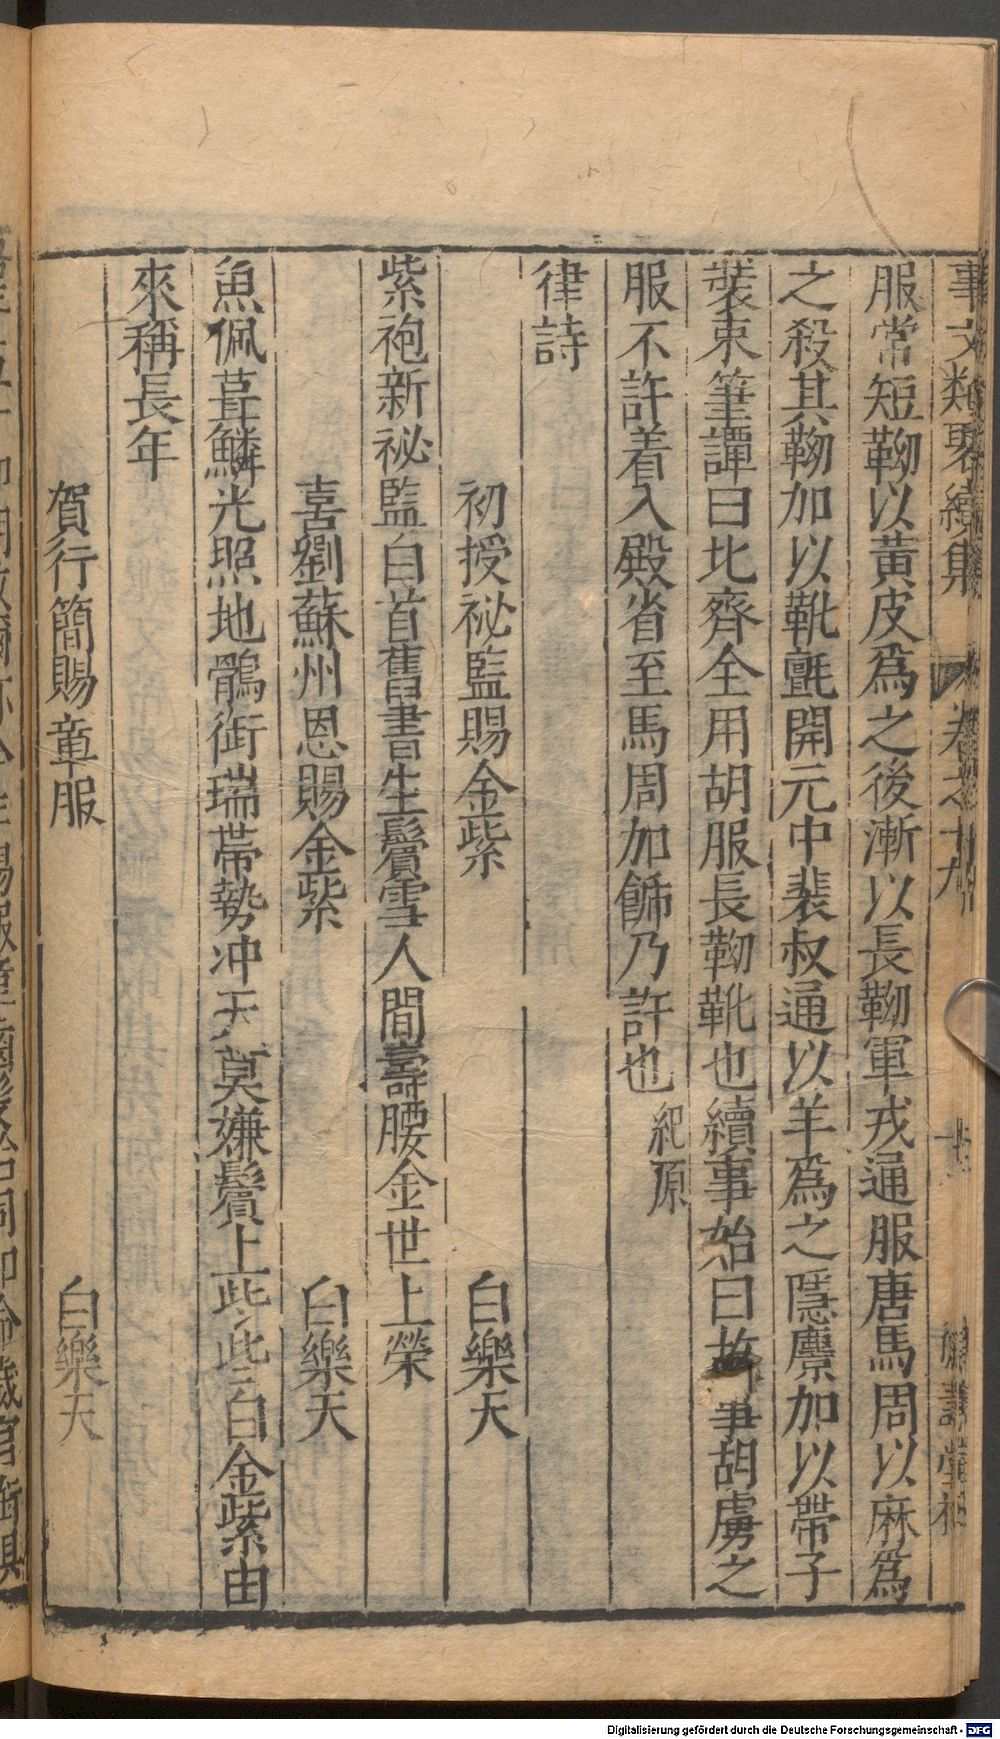 事文類聚續集 卷之十九
服常短靿以黃皮爲之後漸以長靿軍戎通服唐馬周以麻爲
之殺其靿加以靴氊開元中裴叔通以羊爲之隱麖加以帶子
裝束筆譚曰北齊全用胡服長靿靴也續事始曰故事胡虜之
服不許着入殿省至馬周加飾乃許也紀原
律詩
初授祕監賜金紫 白樂天
紫袍新祕監白首舊書生鬢雪人間壽腰金世上榮
喜劉蘇州恩賜金紫 白樂天
魚佩葺鱗光照地鶻銜瑞帶勢冲天莫嫌鬢上些些白金紫由
來稱長年
賀行簡賜章服 白樂天
Digitalisierung gefördert durch die Deutsche Forschungsgemeinschaft - DFG